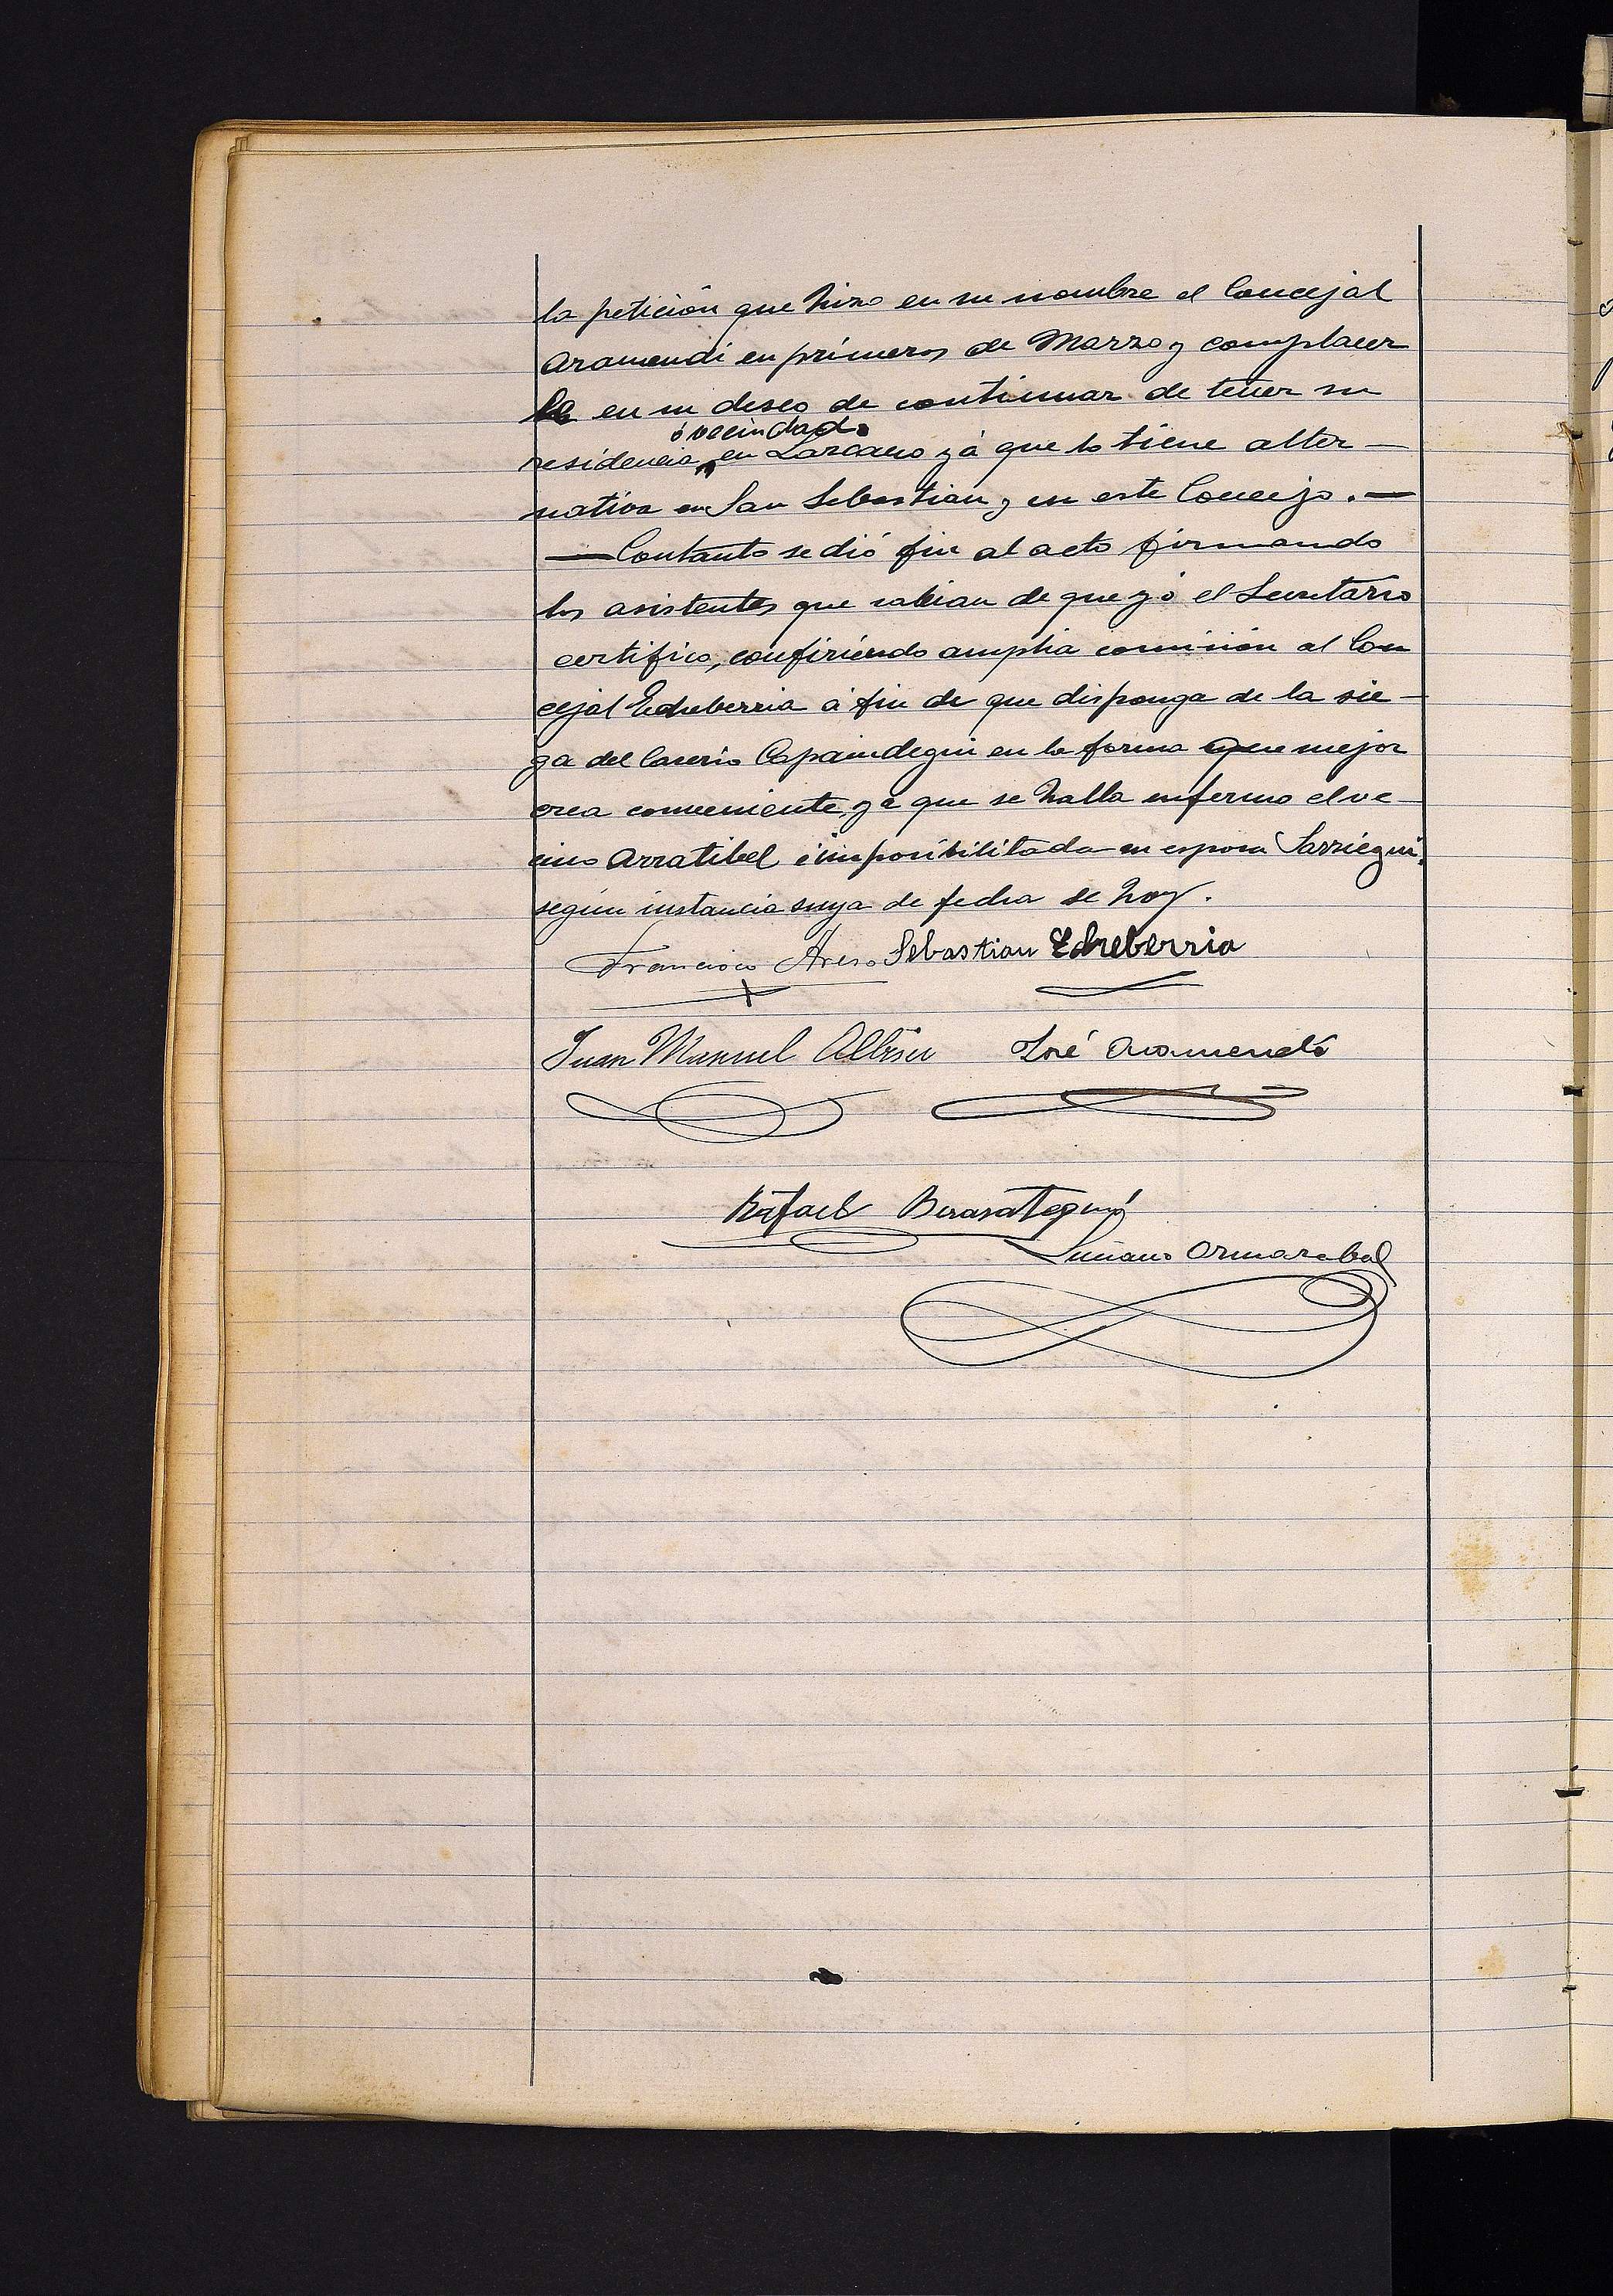 la petición que hizo en su nombre el Concejal
Aramendi en primeros de Marzo y complacer
le en su deseo de continuar de tener su
ó vecindad
residencia en Lazcano yá que lo tiene alter-
nativa en San Sebastian y en este Concejo. —
— Contanto se dió fin al acto firmando
los asistentes que sabian de que yó el Secretario
certifico, confiriendo amplia comisión al Con
cejal Echeberria á fin de que disponga de la sie-
ga del Caserio Capaindegui en la forma que mejor
crea conveniente, yá que se halla enfermo el ve-
cino Arratibel é imposibilitada su esposa Sarriegui,
según instancia suya de fecha de hoy.
Francisco Areso Sebastian Echeberria
Juan Manuel Albisu José Aramendi
Rafael Berasategui
Luciano Ormazabal